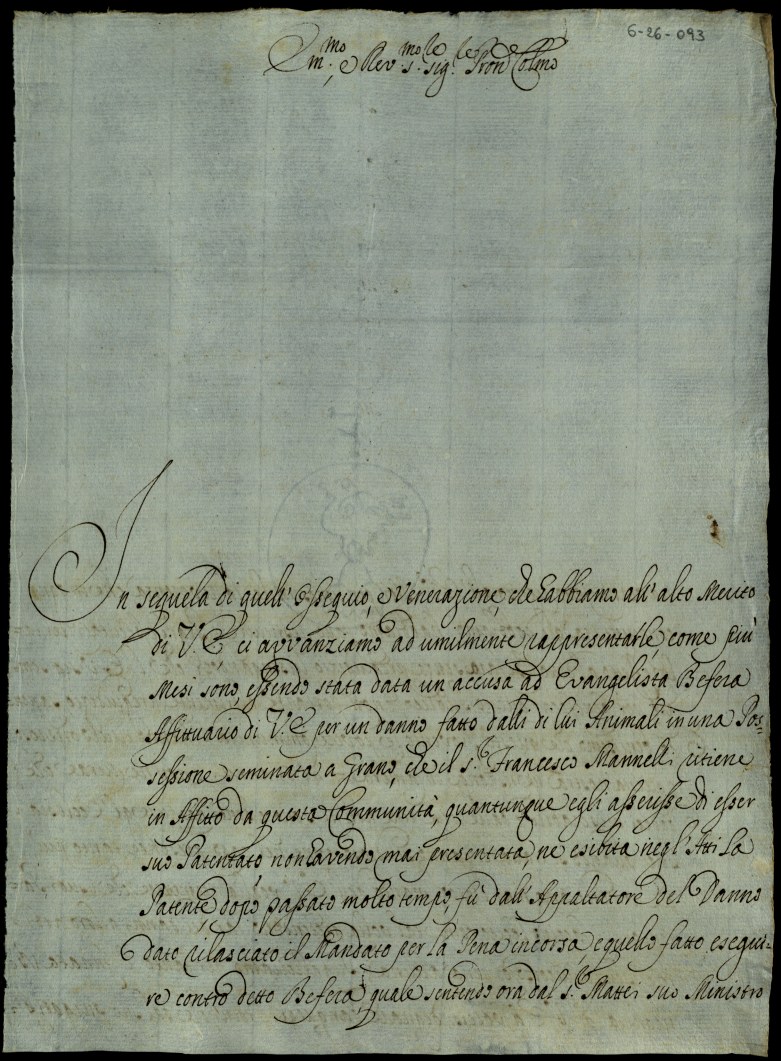 6-26-093
Em.mo, e Rev.mo s. sig.le Pron.e Col.mo
In sequela di quell' Ossequio, e Venerazione, che habbiamo all' alto Merito
di V. E. ci avvanziamo ad umilmente rappresentarle, come più
Mesi sono, essendo stata data un accusa ad Evangelista Befera
Affittuario di V. E. per un danno fatto dalli di lui Animali in una Pos=
sessione seminata a Grano, che il s.r Francesco Mannelli ritiene
in Affitto da questa Communità, quantunque egli asserisse di esser
suo Patentato, non havendo mai presentata, ne esibita negl' Atti la
Patente, dopo passato molto tempo, fù dall' Appaltatore del Danno
dato rilasciato il Mandato per la Pena incorsa, e quello fatto esegui=
re contro detto Befera, quale sentendo ora dal s.r Mattei suo Ministro